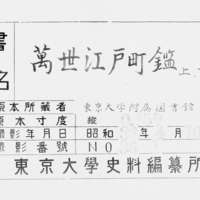 書名
萬世江戸町鑑 上.
原本所蔵者 東京大学附属図書館
原本寸度 縦
撮影年月日 昭和 年 月
撮影番号 NO
東京大學史料編纂所